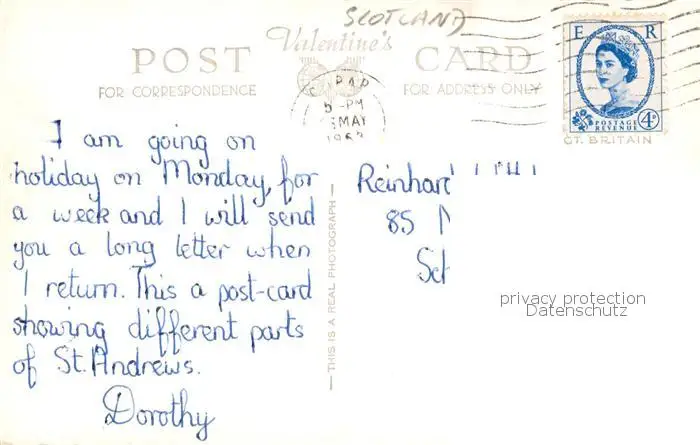 SCOTLAND
Valentine's
POST CARD
FOR CORRESPONDENCE
FOR ADDRESS ONLY
CUPAR
5-PM
MAY
E R
POSTAGE
REVENUE
4D
GT. BRITAIN
I am going on
holiday on Monday, for
a week and I will send
you a long letter when
I return. This a post-card
showing different parts
of St. Andrews.
Dorothy
— THIS IS A REAL PHOTOGRAPH —
Reinhard
85
privacy protection
Datenschutz